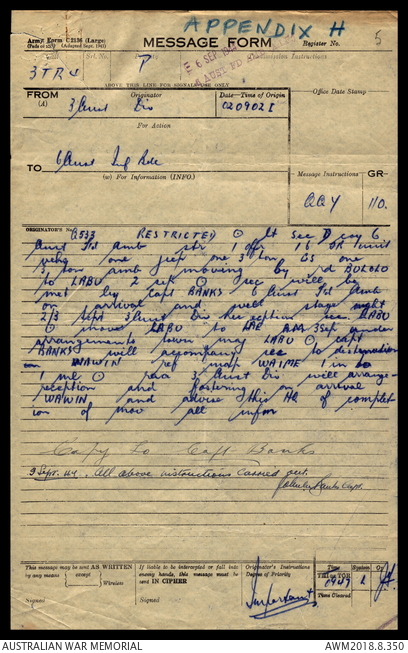 APPENDIX H
Army Form C2136 (Large)
(Adapted Sept. 1941)
MESSAGE FORM
Register No. 5
P
6 SEP
3 TRS
ABOVE THIS LINE FOR SIGNALS USE ONLY
FROM
(A)
Originator
Date-Time of Origin
Office Date Stamp
3 Aust Div
020902 I
For Action
TO
6 Aust
(w) For Information (INFO.)
Message Instructions
GR
QQY
110.
ORIGINATOR'S No. Q533 RESTRICTED ⊙ lt sec D coy 6
Aust Fd amb str 1 offr 16 OR unit
vehs one jeep one 3 ton GS one
3 ton amb moving by rd BULOLO
to LABU 2 sep ⊙ sec will be
met by Capt BANKS 6 Aust Fd Amb
on arrival and will stage night
2/3 Sept 3 Aust Div reception sec LABU
⊙ move LABU to LAE AM 3 Sep under
arrangements town maj LABU ⊙ capt
BANKS will accompany sec to destination
WAWIN ref map WAIME 1 in to
1 ml ⊙ para 3 Aust Div will arrange
reception and on arrival
WAWIN and advise this HQ of complet
ion of mov all infm
Copy to Capt Banks
3 Sept. 44. All above instructions carried out.
Banks Capt.
This message may be sent AS WRITTEN
by any means except Wireless
Signed
If liable to be intercepted or fall into
enemy hands, this message must be
sent IN CIPHER
Signed
Originator's Instructions
Degree of Priority
Important
Time
System
Op
THI or TOR
Time Cleared
AUSTRALIAN WAR MEMORIAL
AWM2018.8.350